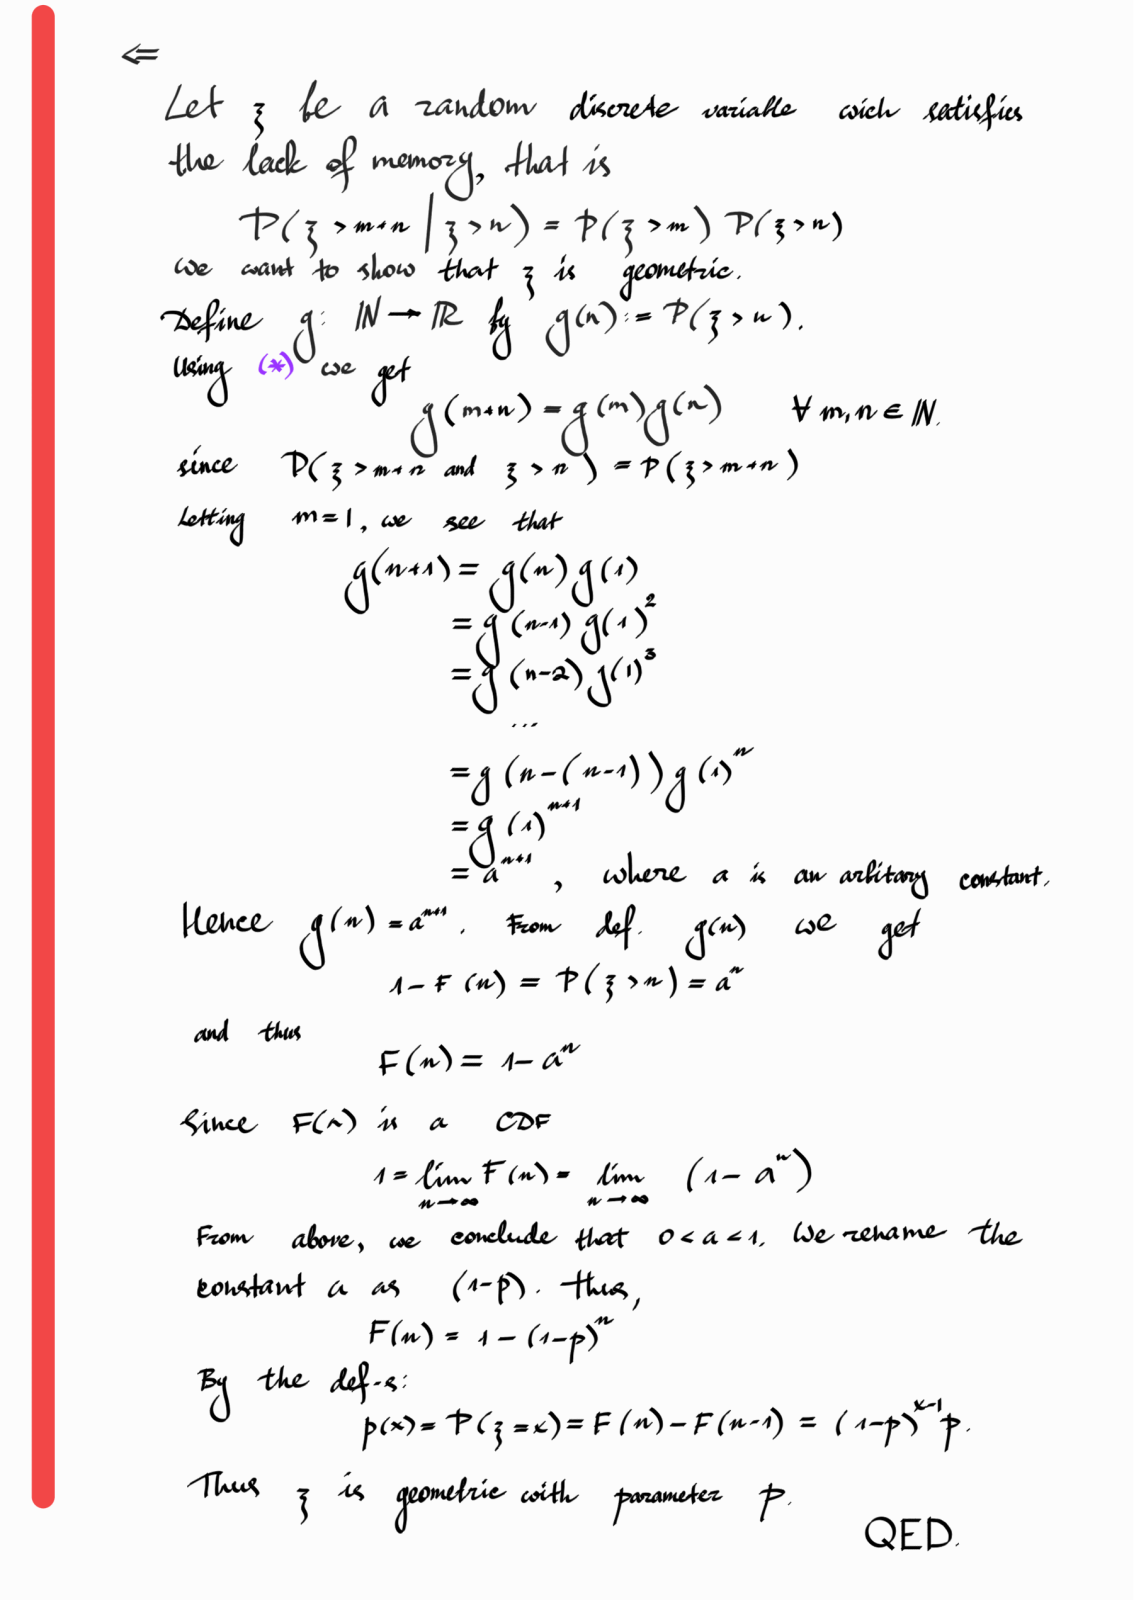 ⇐
Let ξ be a random discrete variable wich satisfies
the lack of memory, that is
P(ξ > m+n | ξ > n) = P(ξ > m) P(ξ > n)
we want to show that ξ is geometric.
Define g: ℕ → ℝ by g(n) := P(ξ > n).
Using (*) we get
g(m+n) = g(m)g(n) ∀ m, n ∈ ℕ.
since P(ξ > m+n and ξ > n) = P(ξ > m+n)
Letting m=1, we see that
g(n+1) = g(n) g(1)
= g(n-1) g(1)²
= g(n-2) g(1)³
...
= g(n-(n-1)) g(1)ⁿ
= g(1)ⁿ⁺¹
= aⁿ⁺¹, where a is an arbitary constant.
Hence g(n) = aⁿ⁺¹. From def. g(n) we get
1 - F(n) = P(ξ > n) = aⁿ
and thus
F(n) = 1 - aⁿ
Since F(n) is a CDF
1 = lim_{n→∞} F(n) = lim_{n→∞} (1 - aⁿ)
From above, we conclude that 0 < a < 1. We rename the
constant a as (1-p). Thus,
F(n) = 1 - (1-p)ⁿ
By the def-s:
p(x) = P(ξ = x) = F(n) - F(n-1) = (1-p)ˣ⁻¹p.
Thus ξ is geometric with parameter p.
QED.